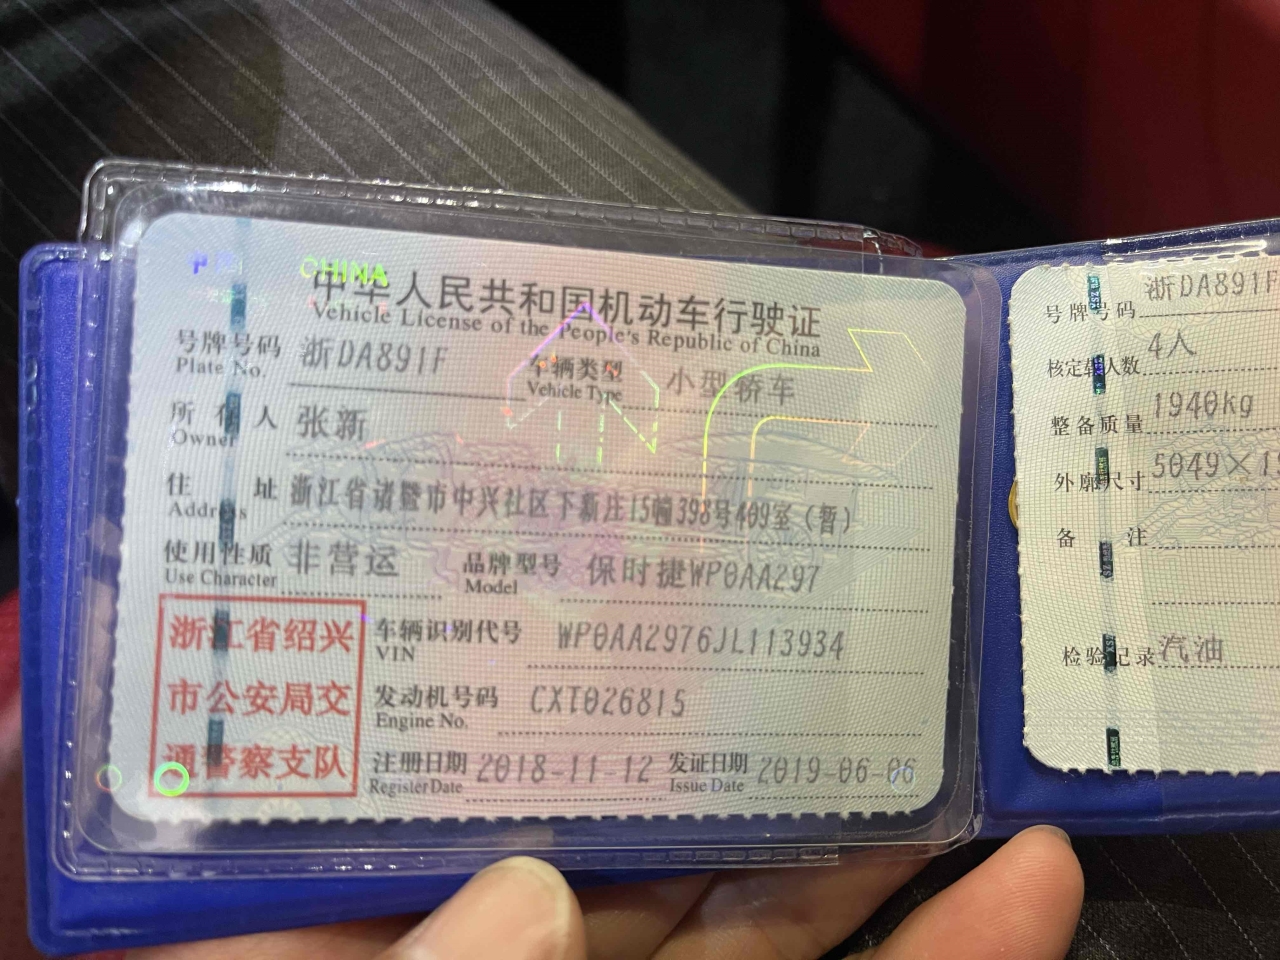 CHINA
中华人民共和国机动车行驶证
Vehicle License of the People's Republic of China
号牌号码 浙DA891F 车辆类型 小型轿车
Plate No. Vehicle Type
所有人 张新
Owner
住址 浙江省诸暨市中兴社区下新庄15幢398号409室（暂）
Address
使用性质 非营运 品牌型号 保时捷WP0AA297
Use Character Model
浙江省绍兴
市公安局交
通警察支队
车辆识别代号 WP0AA2976JL113934
VIN
发动机号码 CXT026815
Engine No.
注册日期 2018-11-12 发证日期 2019-06-06
Register Date Issue Date
号牌号码 浙DA891F
核定载人数 4人
整备质量 1940kg
外廓尺寸 5049×19
备注
检验记录 汽油